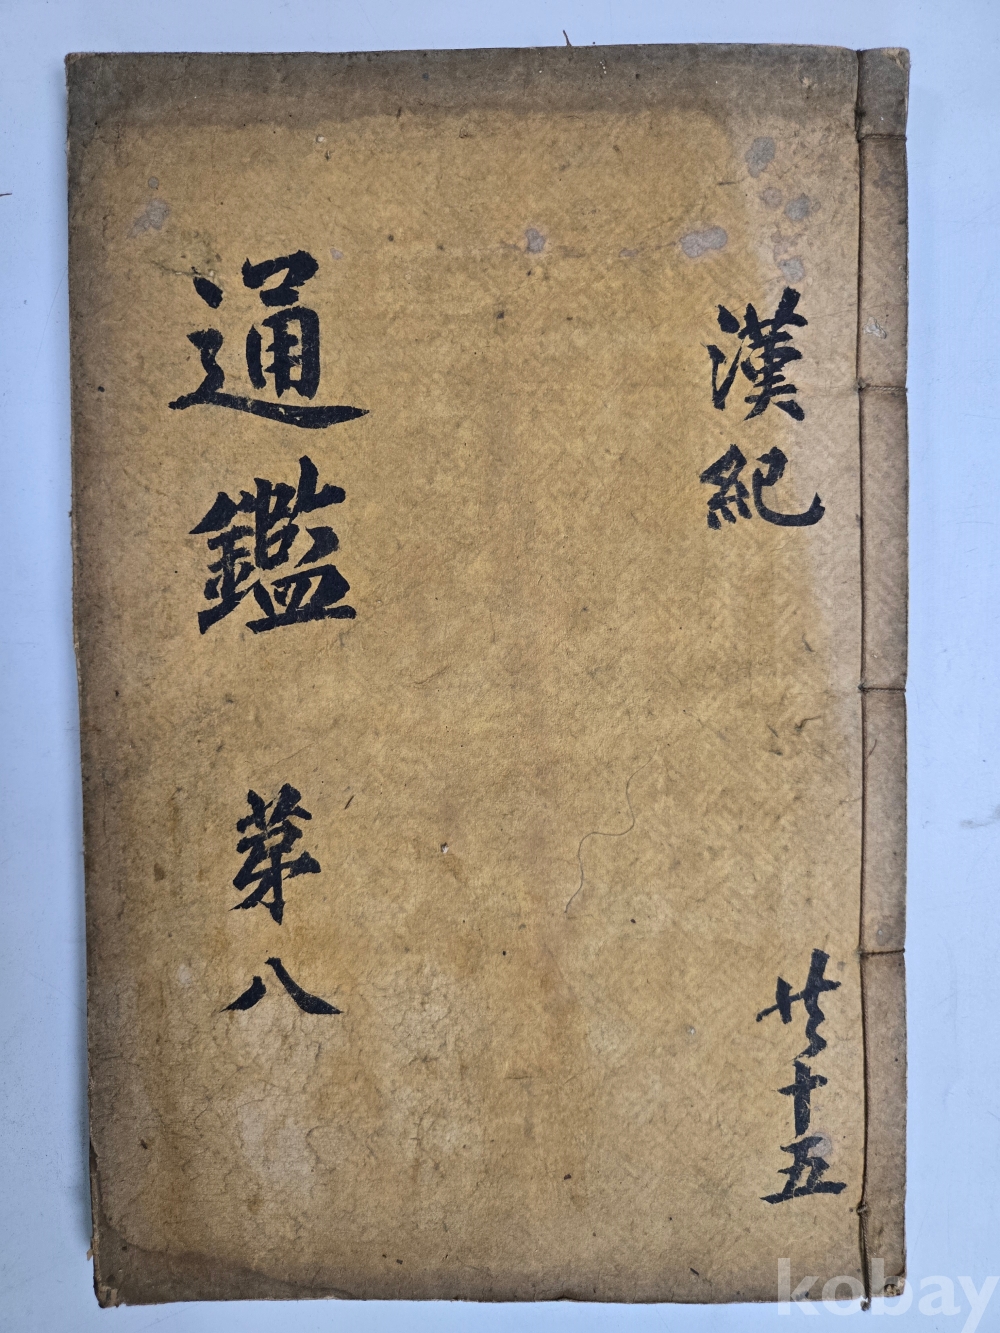 漢紀
共十五
通鑑
苐八
kobay